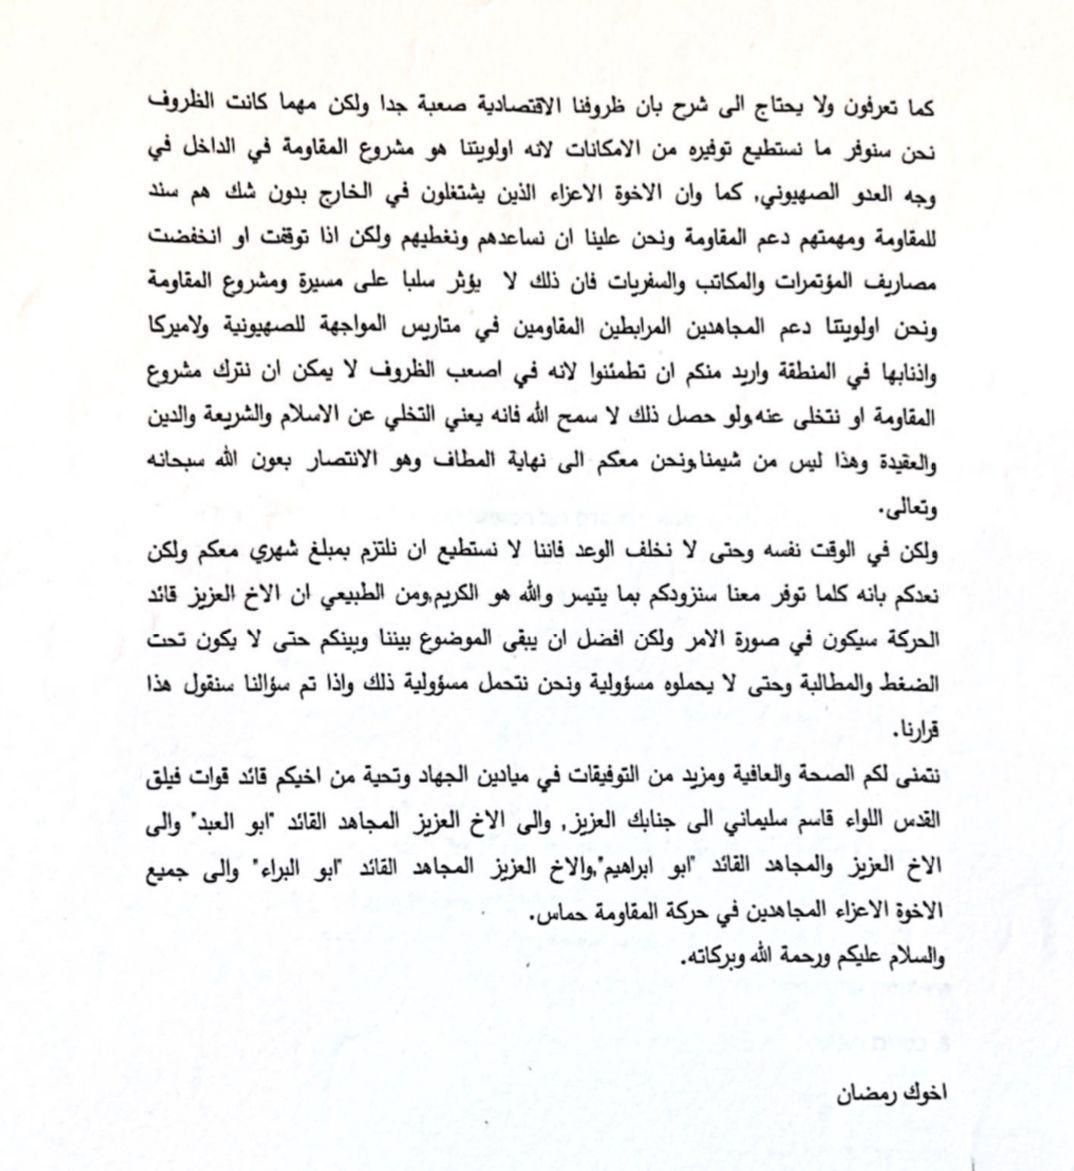 كما تعرفون ولا يحتاج الى شرح بان ظروفنا الاقتصادية صعبة جدا ولكن مهما كانت الظروف
نحن سنوفر ما نستطيع توفيره من الامكانات لانه اولويتنا هو مشروع المقاومة في الداخل في
وجه العدو الصهيوني, كما وان الاخوة الاعزاء الذين يشتغلون في الخارج بدون شك هم سند
للمقاومة ومهمتهم دعم المقاومة ونحن علينا ان نساعدهم ونغطيهم ولكن اذا توقفت او انخفضت
مصاريف المؤتمرات والمكاتب والسفريات فان ذلك لا يؤثر سلبا على مسيرة ومشروع المقاومة
ونحن اولويتنا دعم المجاهدين المرابطين المقاومين في متاريس المواجهة للصهيونية ولاميركا
واذنابها في المنطقة واريد منكم ان تطمئنوا لانه في اصعب الظروف لا يمكن ان نترك مشروع
المقاومة او نتخلى عنه,ولو حصل ذلك لا سمح الله فانه يعني التخلي عن الاسلام والشريعة والدين
والعقيدة وهذا ليس من شيمنا,ونحن معكم الى نهاية المطاف وهو الانتصار بعون الله سبحانه
وتعالى.
ولكن في الوقت نفسه وحتى لا نخلف الوعد فاننا لا نستطيع ان نلتزم بمبلغ شهري معكم ولكن
نعدكم بانه كلما توفر معنا سنزودكم بما يتيسر والله هو الكريم,ومن الطبيعي ان الاخ العزيز قائد
الحركة سيكون في صورة الامر ولكن افضل ان يبقى الموضوع بيننا وبينكم حتى لا يكون تحت
الضغط والمطالبة وحتى لا يحملوه مسؤولية ونحن نتحمل مسؤولية ذلك واذا تم سؤالنا سنقول هذا
قرارنا.
نتمنى لكم الصحة والعافية ومزيد من التوفيقات في ميادين الجهاد وتحية من اخيكم قائد قوات فيلق
القدس اللواء قاسم سليماني الى جنابك العزيز, والى الاخ العزيز المجاهد القائد "ابو العبد" والى
الاخ العزيز والمجاهد القائد "ابو ابراهيم",والاخ العزيز المجاهد القائد "ابو البراء" والى جميع
الاخوة الاعزاء المجاهدين في حركة المقاومة حماس.
والسلام عليكم ورحمة الله وبركاته.
اخوك رمضان